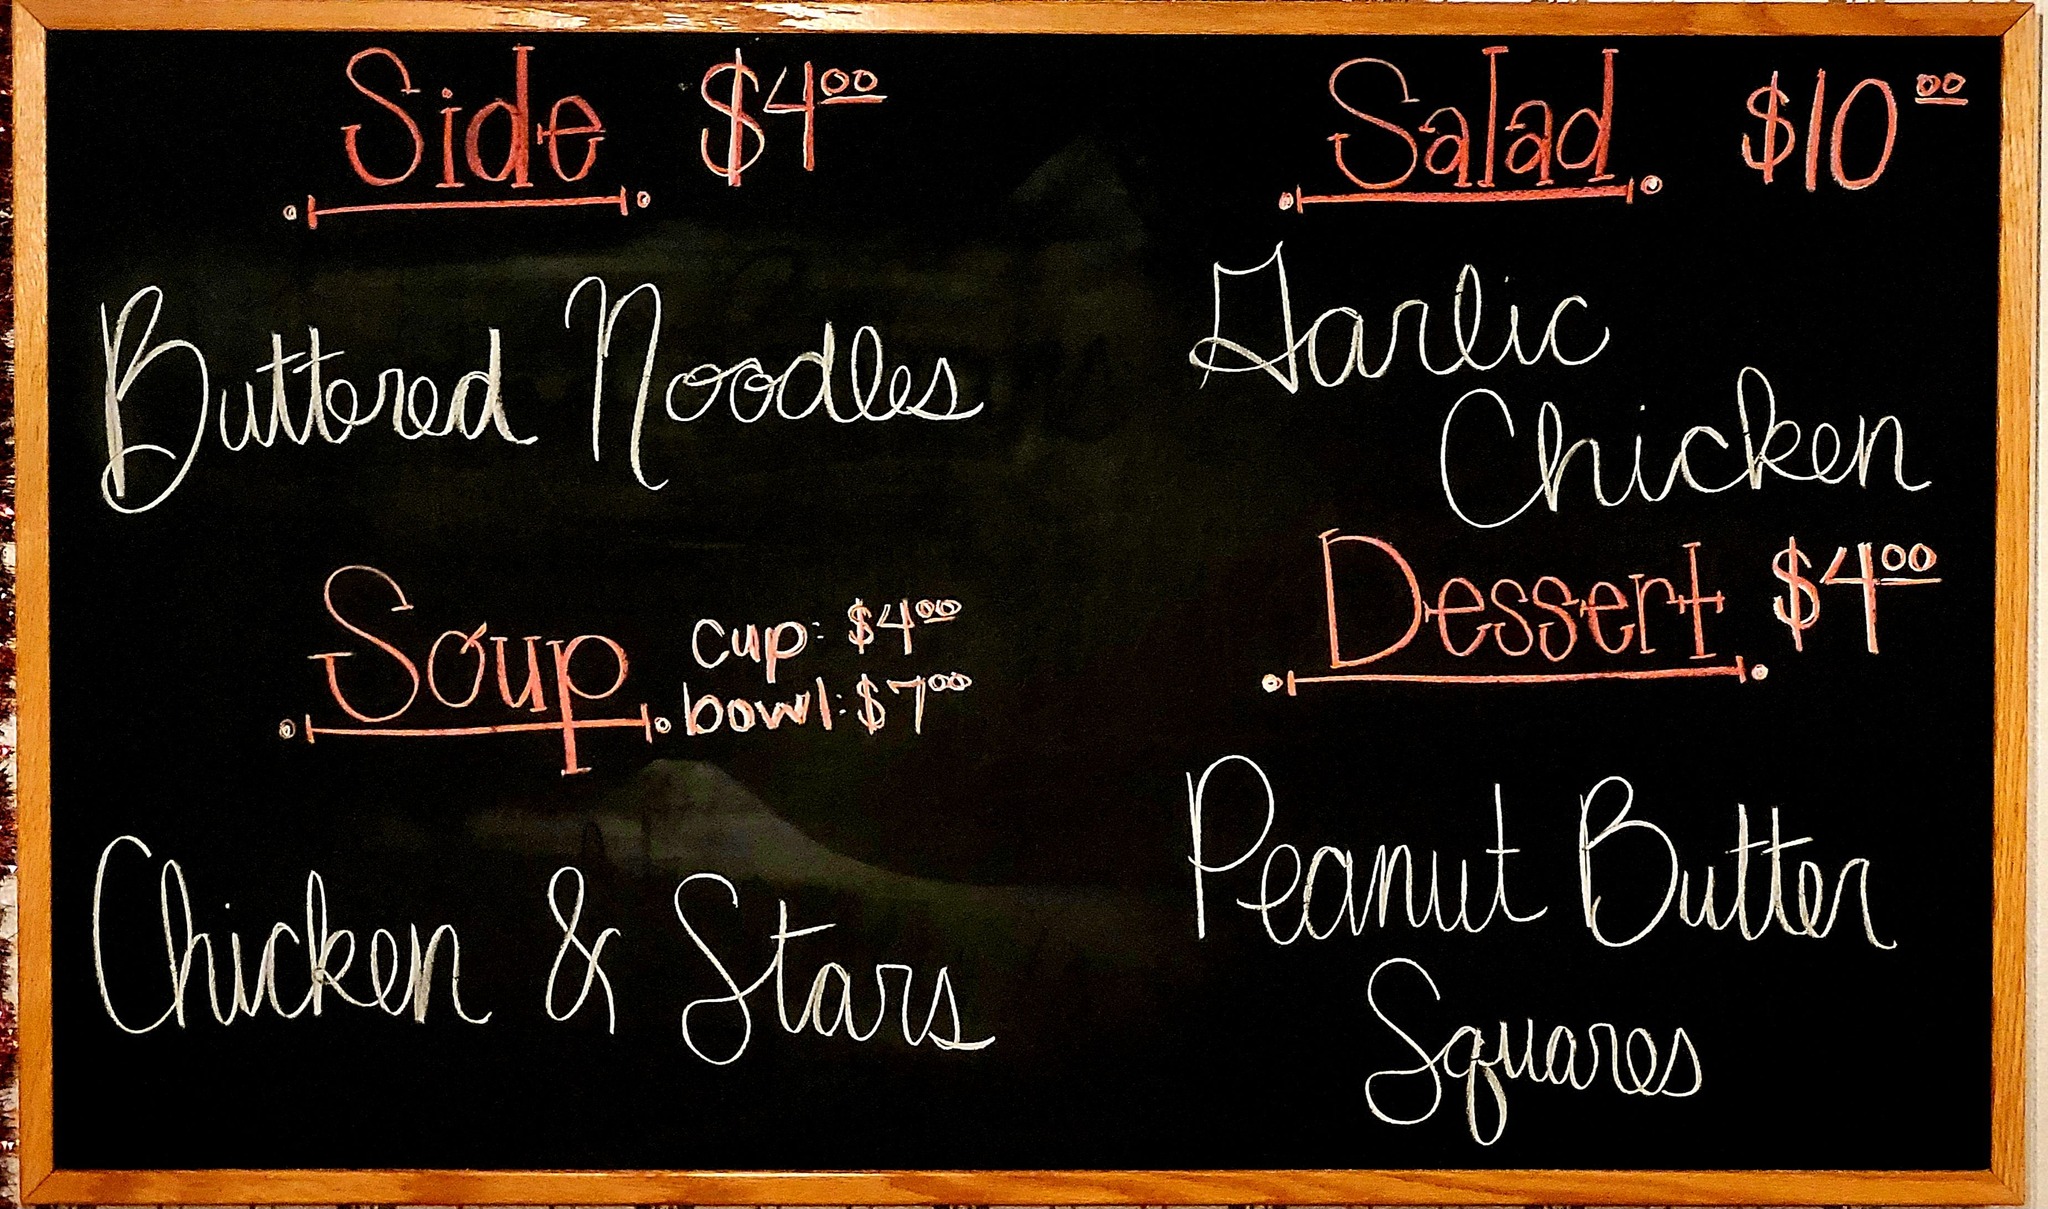 Side $4.00
Buttered Noodles
Soup
cup: $4.00
bowl: $7.00
Chicken & Stars
Salad $10.00
Garlic
Chicken
Dessert $4.00
Peanut Butter
Squares